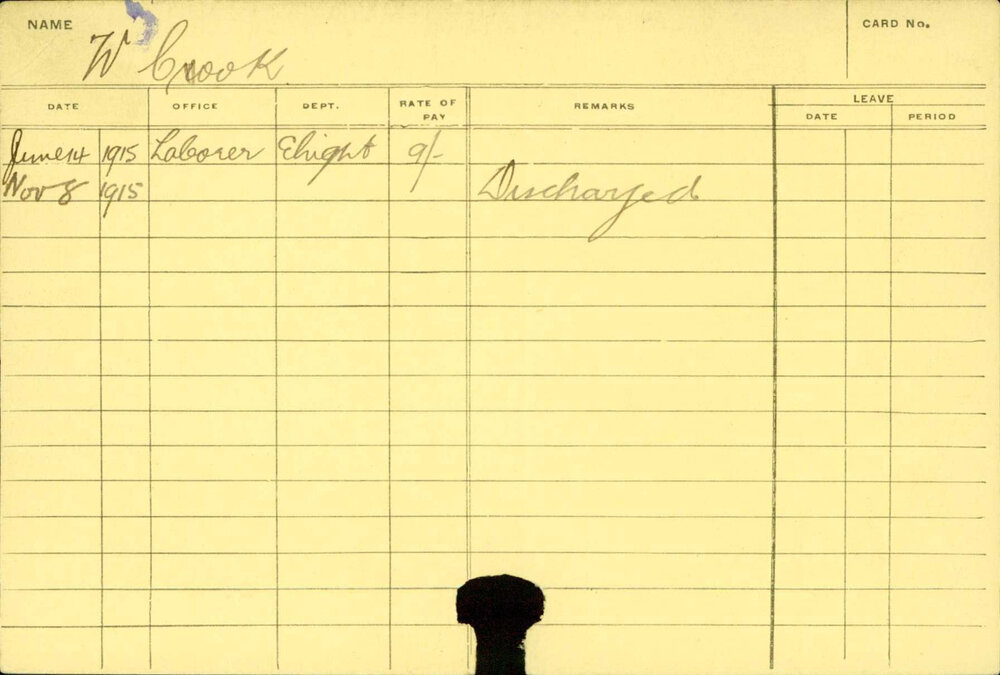 NAME
CARD No.
W Crook
DATE OFFICE DEPT. RATE OF PAY REMARKS LEAVE
DATE PERIOD
June 14 1915 Laborer Elright 9/-
Nov 8 1915 Discharged